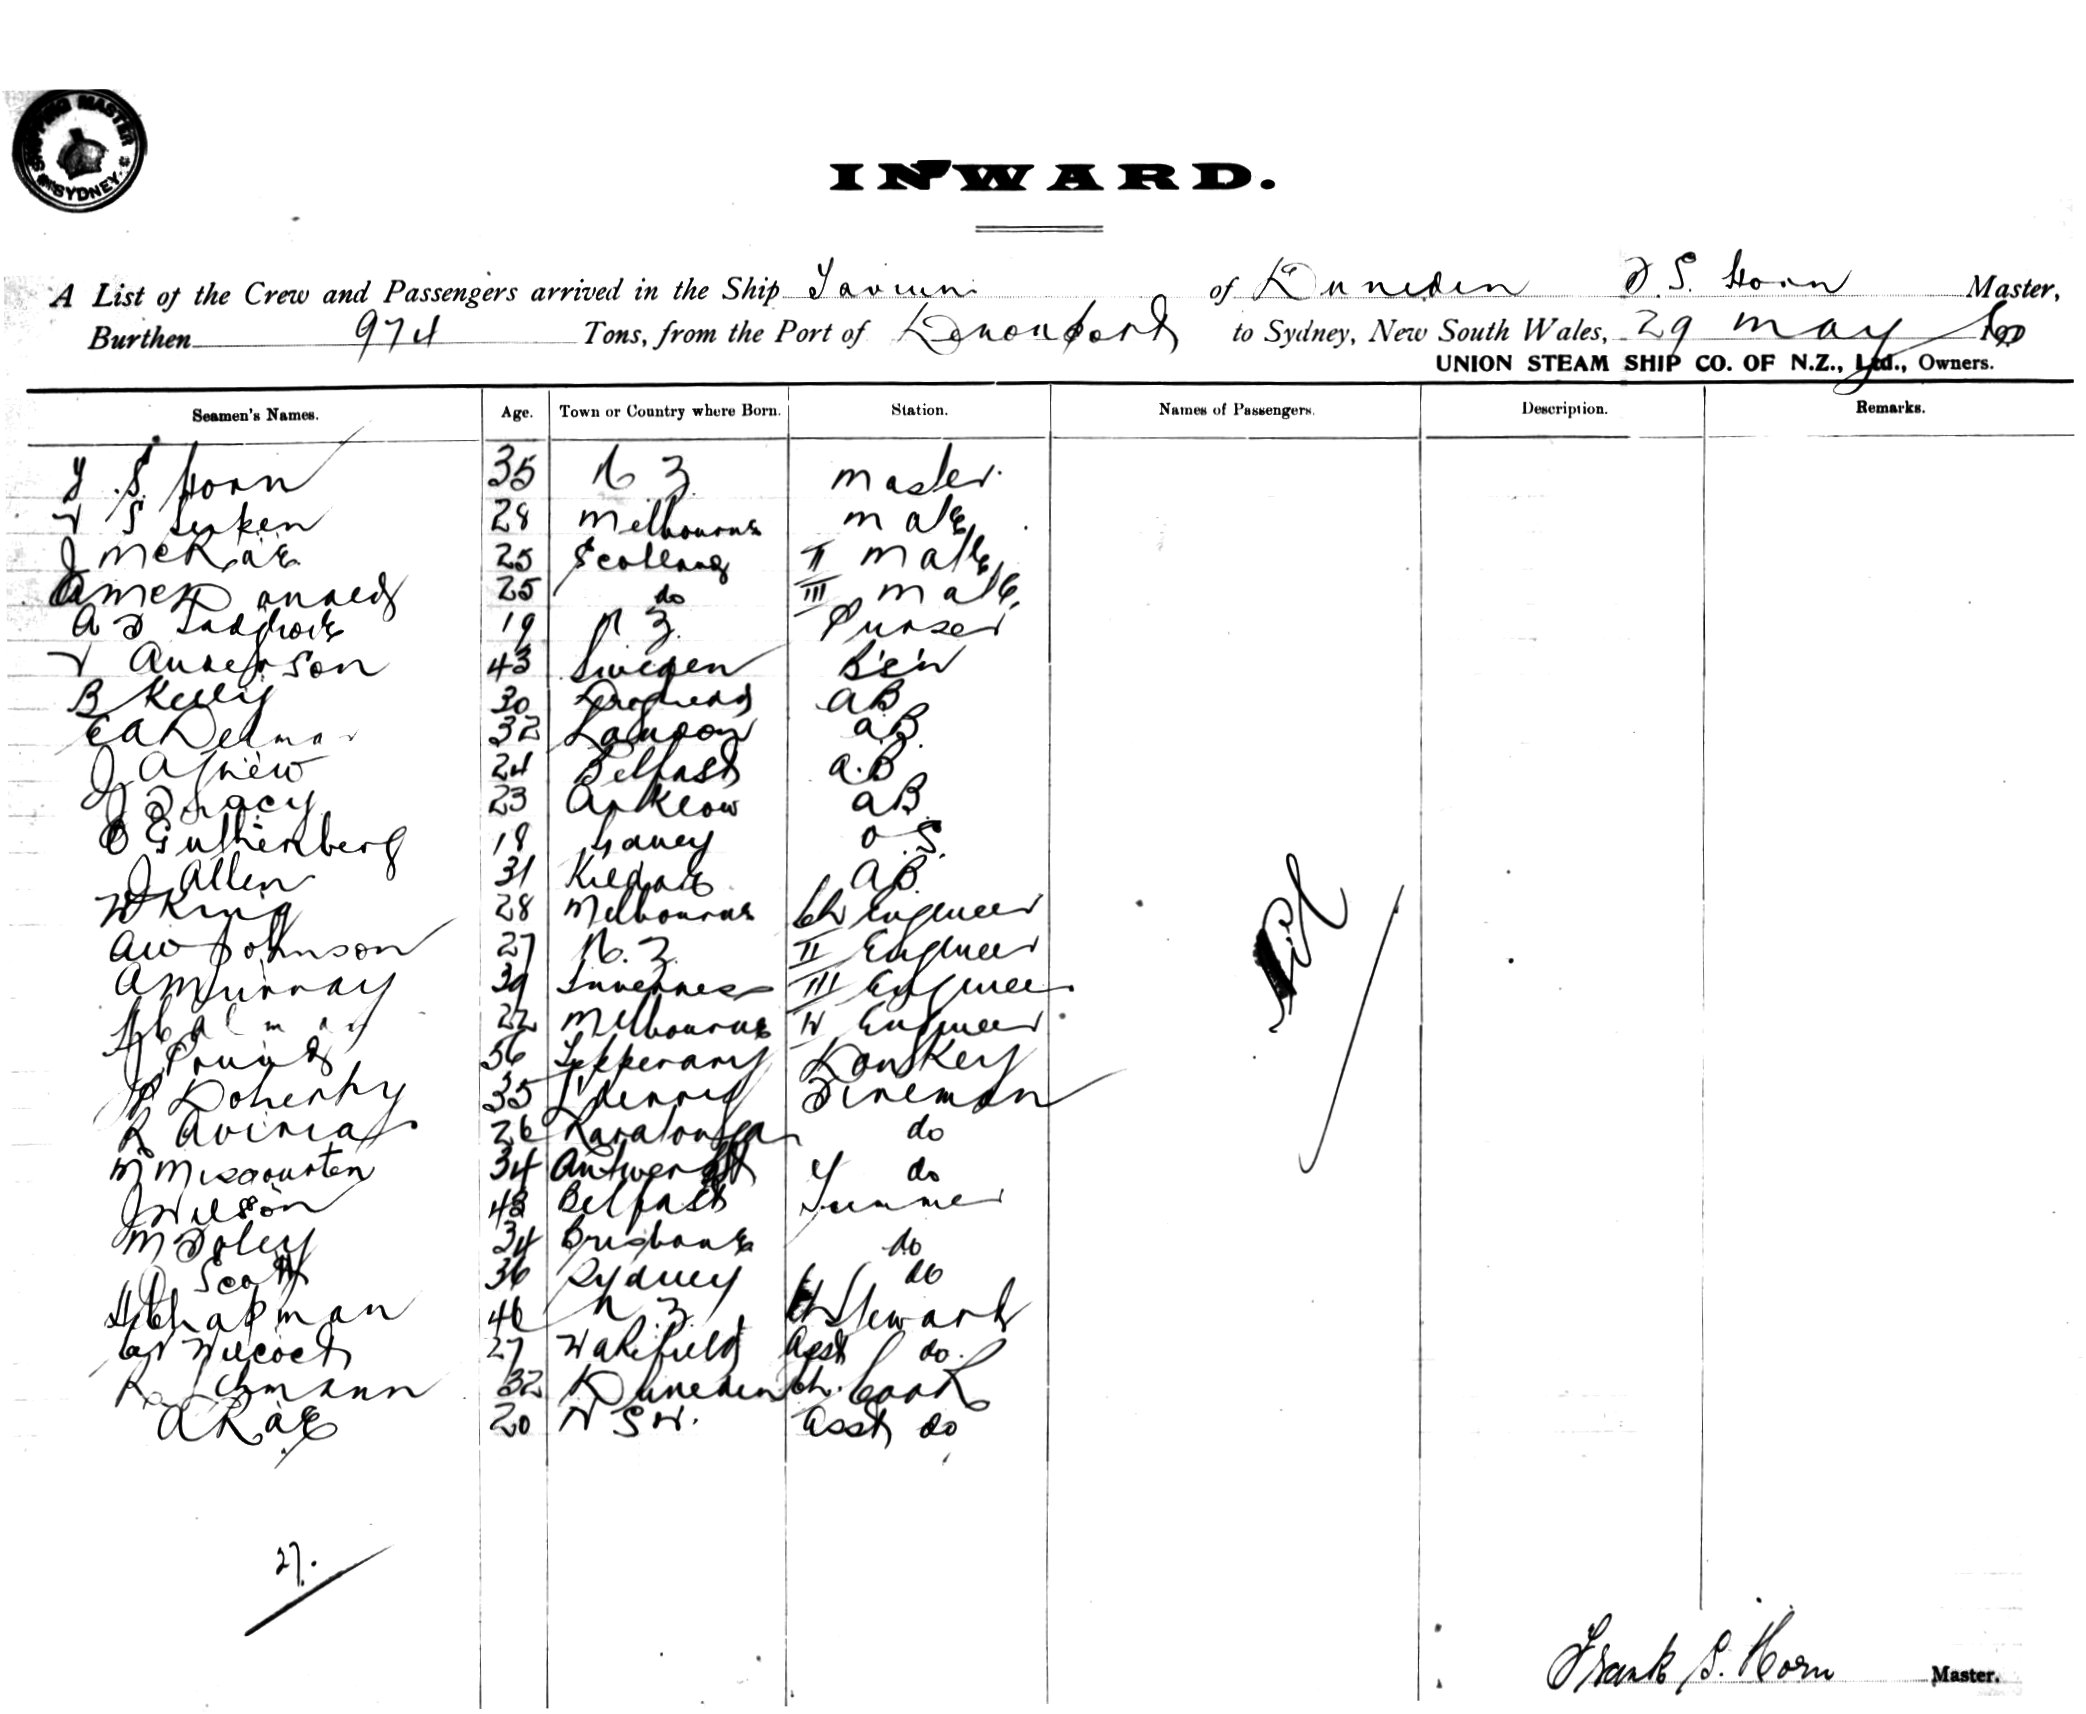 SHIPPING MASTER
SYDNEY
INWARD.
A List of the Crew and Passengers arrived in the Ship of Dunedin F. S. Horn Master,
Burthen 974 Tons, from the Port of Devonport to Sydney, New South Wales, 29 May
UNION STEAM SHIP CO. OF N.Z., Ltd., Owners.
Seamen's Names. Age. Town or Country where Born. Station. Names of Passengers. Description. Remarks.
F. S. Horn 35 N Z Master
S 28 Melbourne Mate
J McRae 25 Scotland II Mate
A McDonnell 25 do III Mate
A F 19 N Z. Purser
Anderson 43 Sweden B's'n
B Kelly 30 AB
E A Delmar 32 London a.B.
J Agnew 24 Belfast a.B
J Tracy 23 Arklow aB
Guthenberg 18 o.S.
J Allen 31 Kildare AB.
W King 28 Melbourne Ch Engineer
AW Johnson 27 N. Z. II Engineer
A Murray 39 Inverness III Engineer
22 Melbourne IV Engineer
J 56 Tipperary Donkey
P Doherty 35 L'derry Fireman
R 26 Raratonga do
M 34 Antwerp do
J Wilson 43 Belfast Trimmer
M Foley 34 Brisbane do
Scott 36 Sydney do
H Chapman 46 N. Z. Steward
Wilcock 27 Wakefield Asst do.
R 32 Dunedin Ch. Cook
A Rae 20 N S W. Asst do
Nil
27.
Frank S. Horn Master.